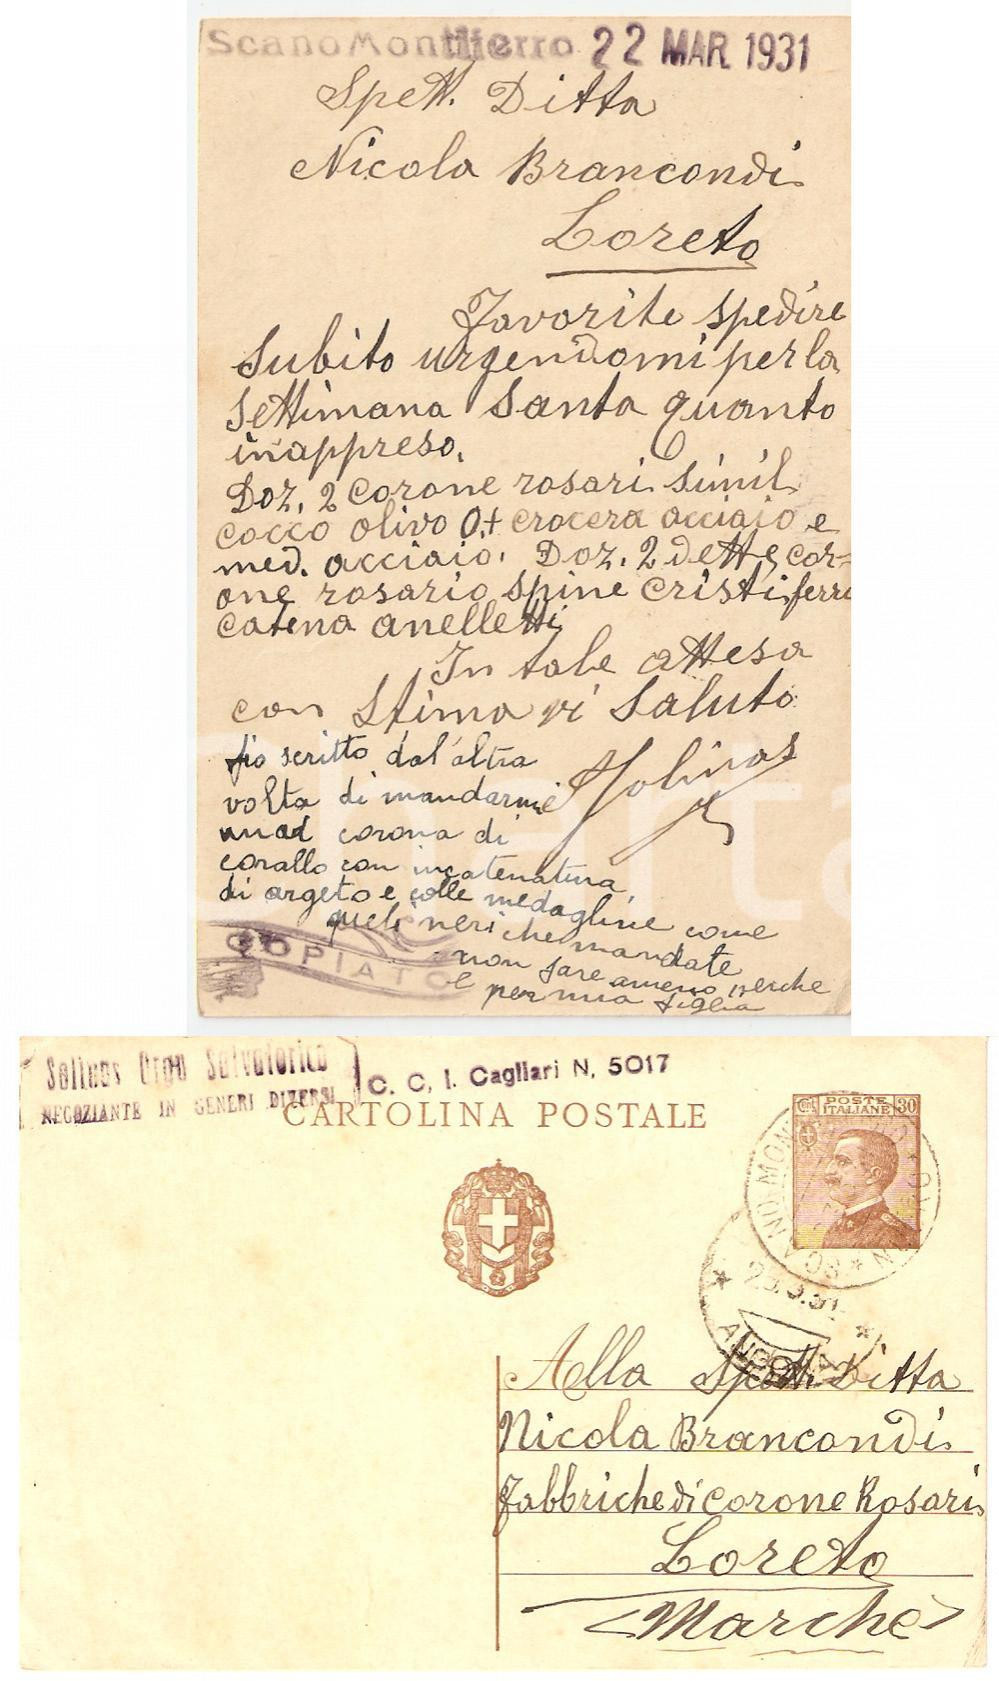 Scano Montiferro 22 MAR 1931
Spett. Ditta
Nicola Brancondi
Loreto
Favorite spedire
Subito urgendomi per la
Settimana Santa quanto
inappreso.
Doz. 2 corone rosari simil
cocco olivo 0+ crocera acciaio e
med. acciaio. Doz. 2 dette cor-
one rosario spine cristi, ferro
catena anelletti
In tale attesa
con stima vi saluto
Solinas
fio scritto dal'altra
volta di mandarmi
corona di
corallo con incatenatura
di argeto e colle medagline come
queli neri che mandate
non fare ameno perche
e per mia figlia
COPIATO
Solinas Orgu Salvatorico
NEGOZIANTE IN GENERI DIVERSI
C. C. I. Cagliari N. 5017
CARTOLINA POSTALE
POSTE ITALIANE 30
23.3.31
ANCONA
Alla Spett. Ditta
Nicola Brancondi
Fabbriche di corone Rosari
Loreto
Marche